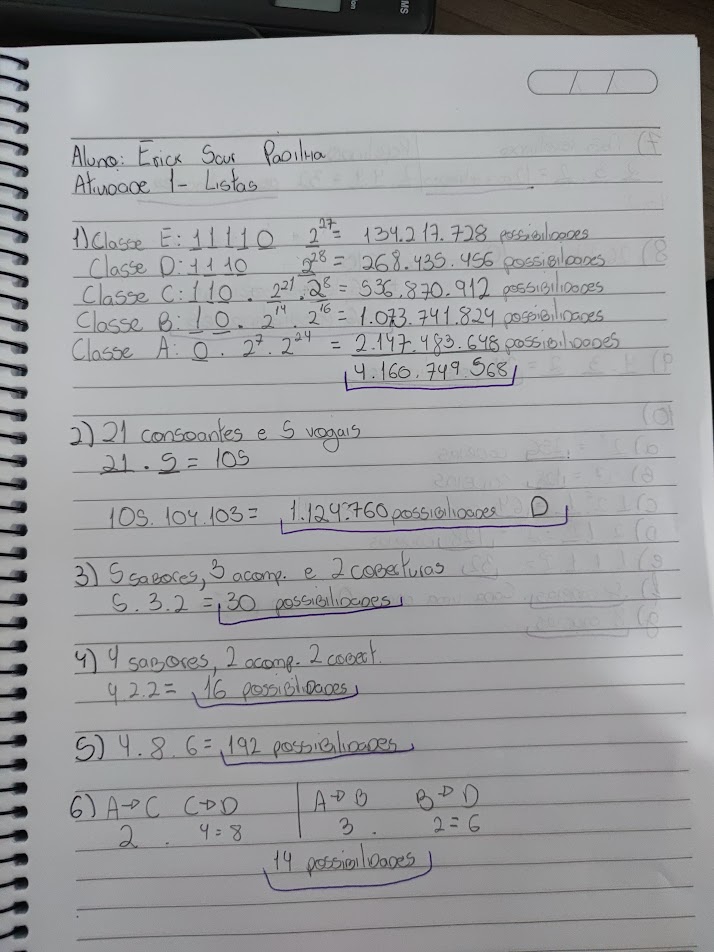 Aluno: Erick Saur Padilha
Atividade 1 - Listas
1) Classe E: 11110 2^27 = 134.217.728 possibilidades
Classe D: 1110 2^28 = 268.435.456 possibilidades
Classe C: 110 . 2^21 . 2^8 = 536.870.912 possibilidades
Classe B: 10 . 2^14 . 2^16 = 1.073.741.824 possibilidades
Classe A: 0 . 2^7 . 2^24 = 2.147.483.648 possibilidades
4.160.749.568
2) 21 consoantes e 5 vogais
21 . 5 = 105
105.104.103 = 1.124.760 possibilidades D
3) 5 sabores, 3 acomp. e 2 coberturas
5.3.2 = 30 possibilidades
4) 4 sabores, 2 acomp. 2 cobert.
4.2.2 = 16 possibilidades
5) 4.8.6 = 192 possibilidades
6) A→C C→D | A→B B→D
2 . 4 = 8 | 3 . 2 = 6
14 possibilidades